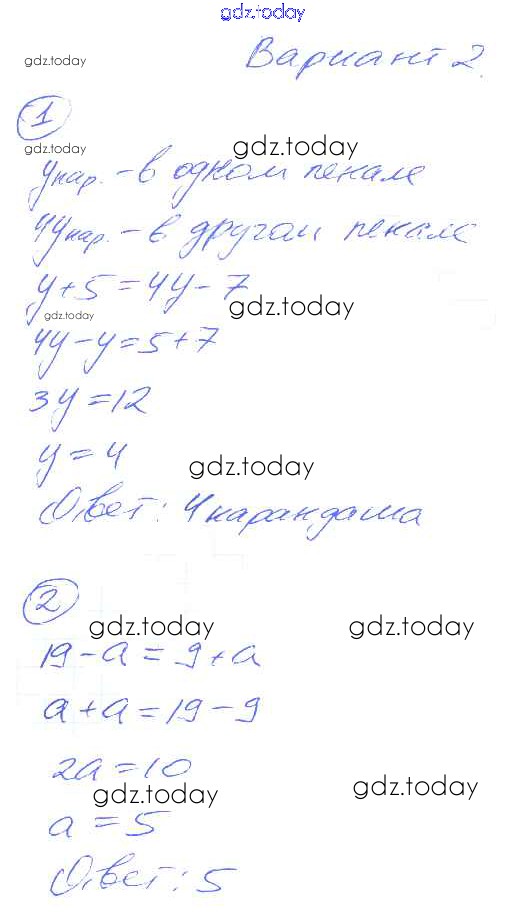 gdz.today
gdz.today
Вариант 2.
1
gdz.today
gdz.today
y кар. - в одном пенале
4y кар. - в другом пенале
y + 5 = 4y - 7
gdz.today
gdz.today
4y - y = 5 + 7
3y = 12
y = 4
gdz.today
Ответ: 4 карандаша
2
gdz.today
gdz.today
19 - a = 9 + a
a + a = 19 - 9
2a = 10
gdz.today
gdz.today
a = 5
Ответ: 5